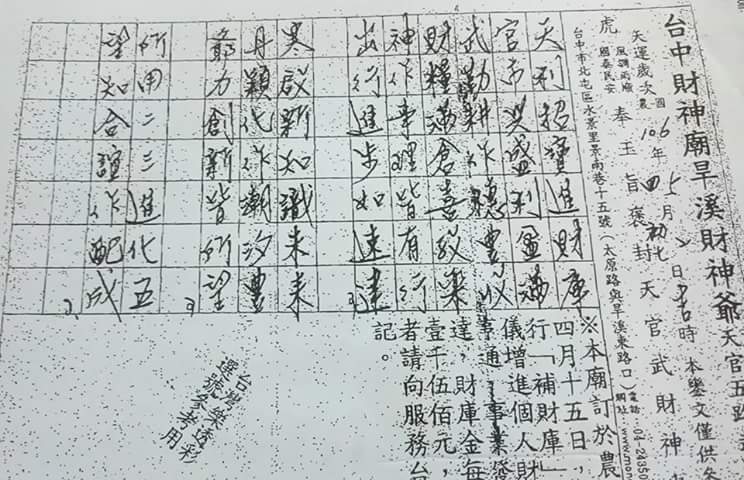 台中財神廟旱溪財神爺 天官五路
天運歲次 國農 106年 四5月 初七2日 吉時 本鑾文僅供
虎 風調雨順 國泰民安 奉玉旨褒封天官武財神
台中市北屯區水景里景南巷十五號(太原路與旱溪東路口) 電話 04-24350 網址 www.mon
天利招寶進財庫
官市興盛利盈滿
武勤耕作穗豐收
財糧滿倉喜
神作事理皆有行
出行進步如速達
寒啟新知識未來
丹穎代作潮汐豐
爺力創新皆所望
所用二三進化五
望知合誼作配成
※本廟訂於農
四月十五日,
行「補財庫」
儀增進個人財
事通、事業發
達,財庫金每
壹千伍佰元,
者請向服務台
記。
台灣樂透彩
選號參考用